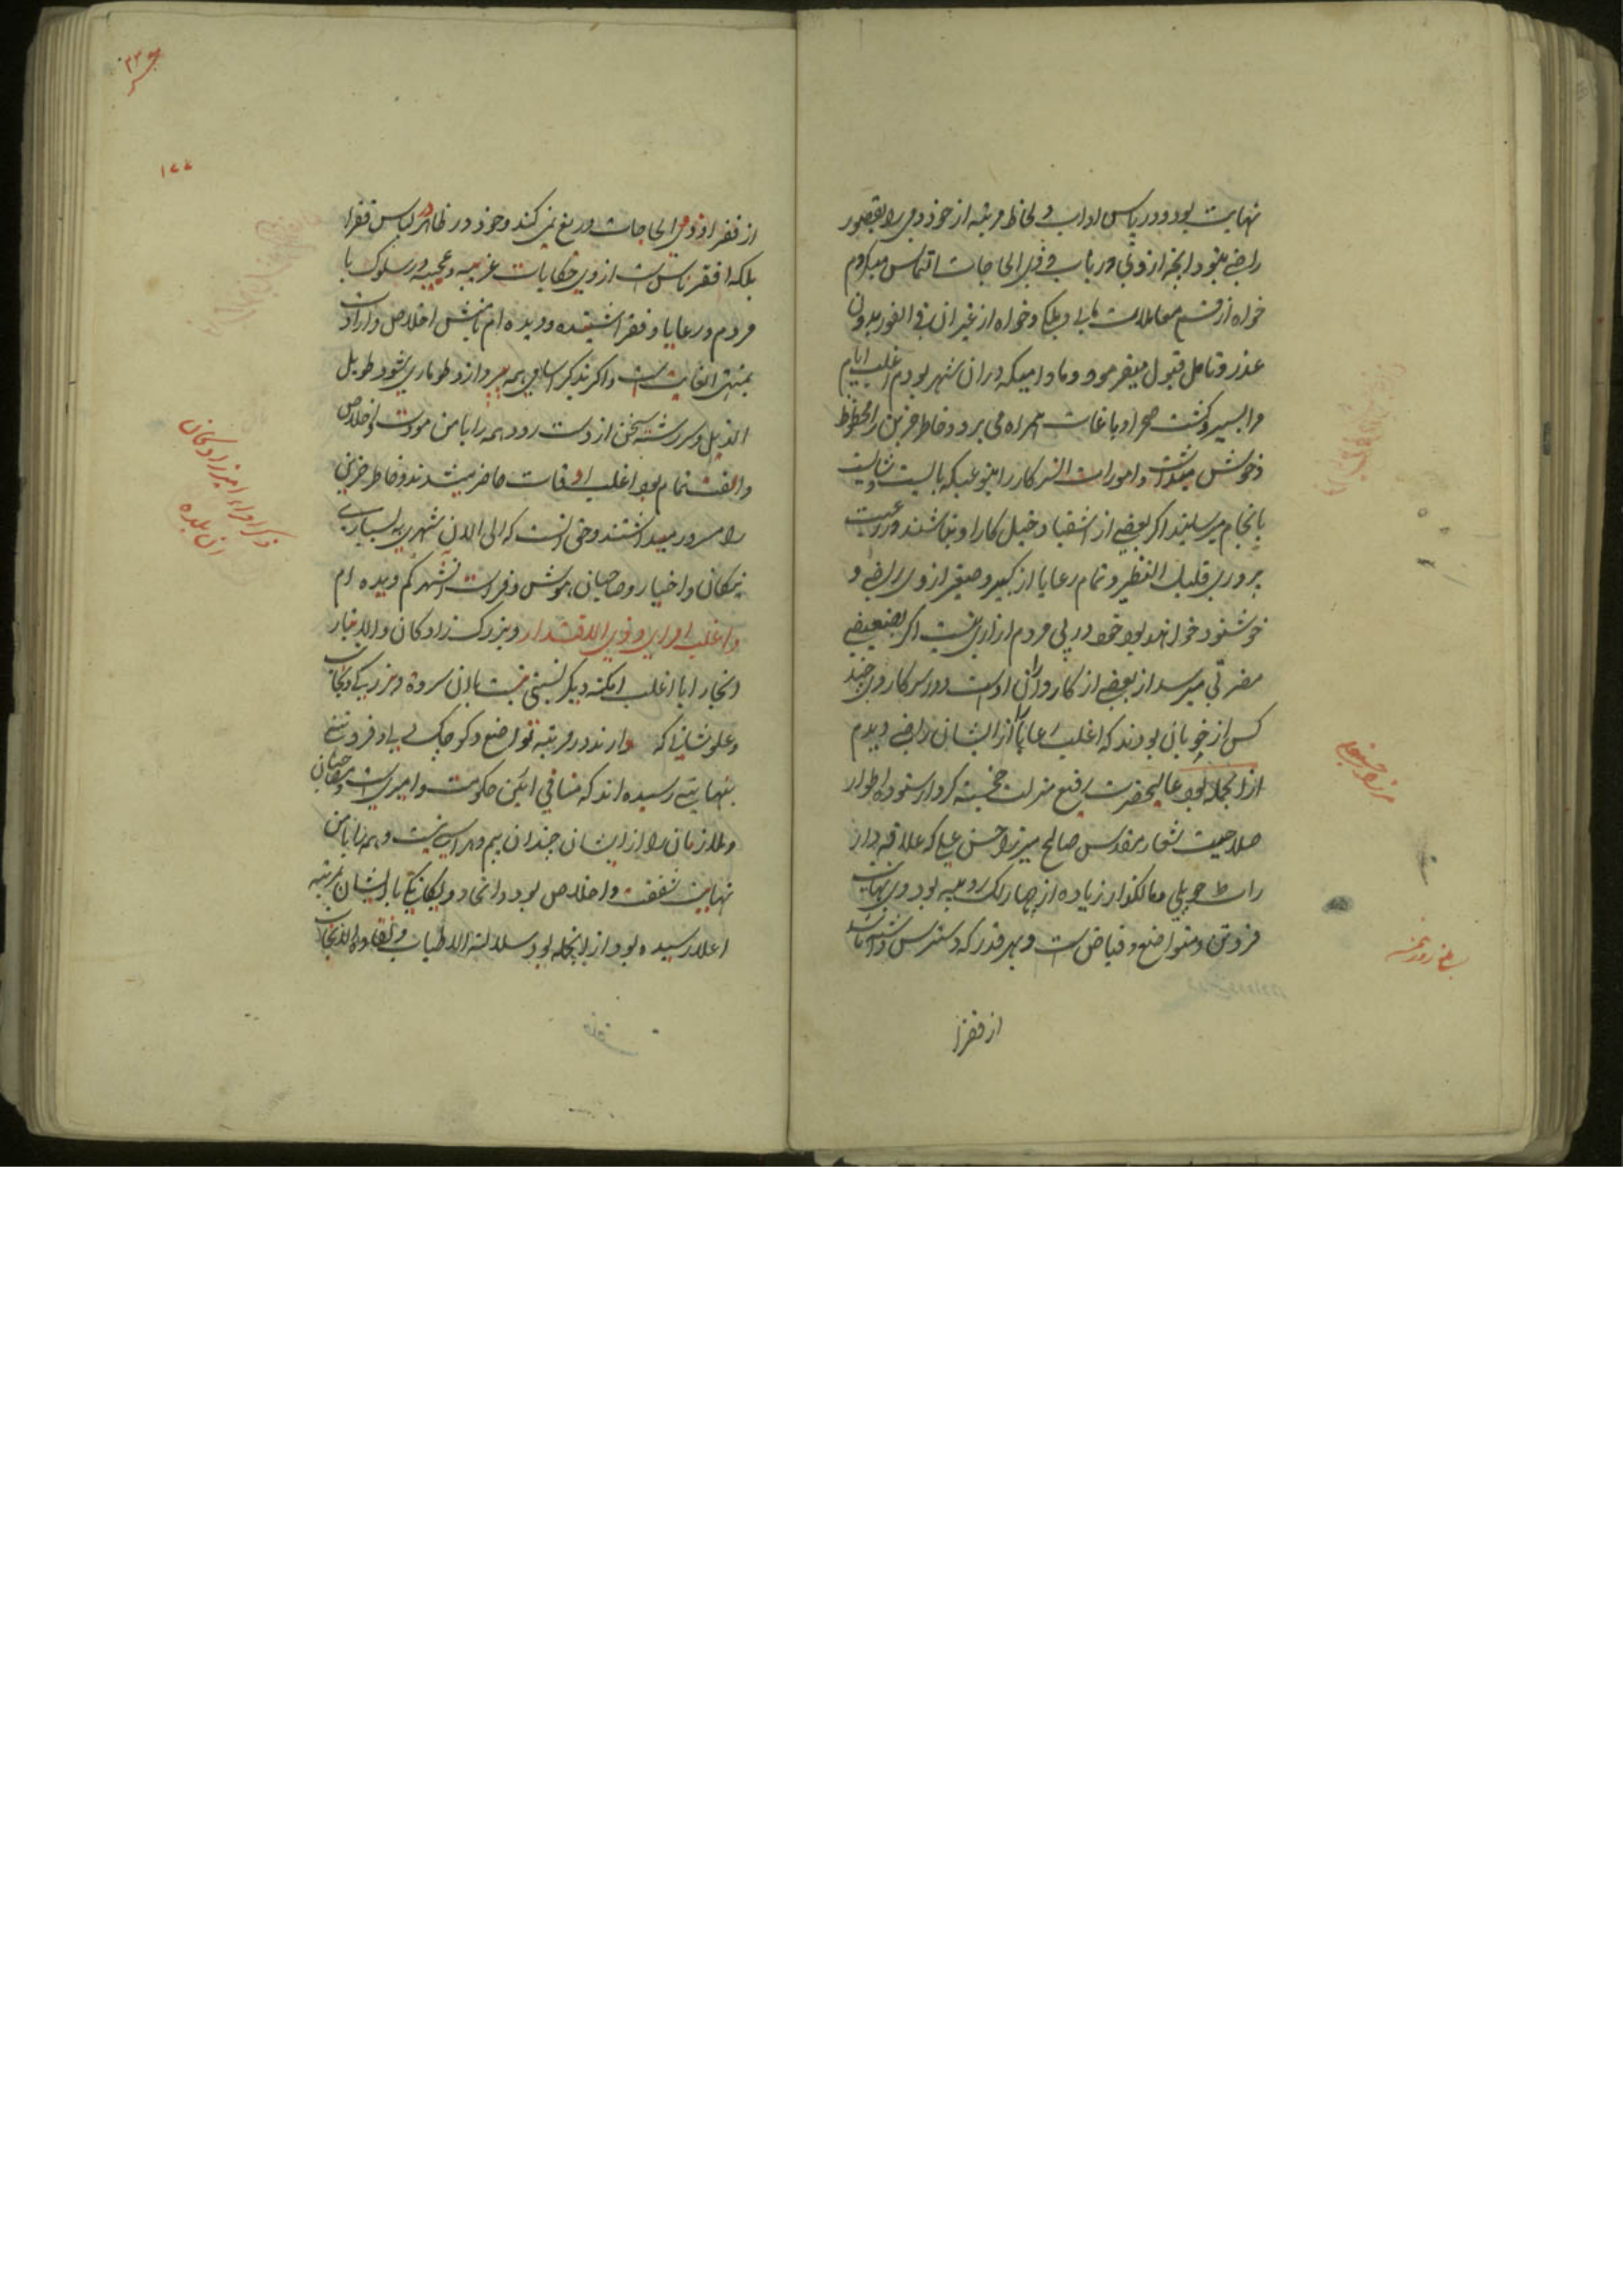 نهایت بود و در پاس اداب و لحاظ مرتبه از خود وی را بقصور
راضی نبود و انچه از وی در باب ذوی الحاجات التماس میکردم
خواه از قسم معاملات مالی و ملکی و خواه از غیر ان فی الفور بدون
عذر و تامل قبول میفرمود و مادامیکه در ان شهر بودم اغلب ایام
مرا بسیر و کشت صحرا و باغات همراه می برد و خاطر حزین را محظوظ
و خوش میداشت و امورات السرکار را بنوعیکه بایست و شایست
بانجام میرسانید اکر بعضی از اشقیا دخیل کار او نباشند در رعیت
پروری قلیل النظیر و تمام رعایا از کبیر و صغیر از وی راضی و
خوشنود خواهند بود خود در پی مردم ازاری نیست اکر بضعیفی
مضرتی میرسد از بعضی از کارداران اوست و در سرکار وی چند
کس از خوبان بودند که اغلب رعایا را از ایشان راضی دیدم
از انجمله بود عالیحضرت رفیع منزلت خجسته کردار ستوده اطوار
صلاحیت شعار مقدس صالح میرزا حسن علی که علاقه دارد
راست حویلی و مالکذار زیاده از چهار لک روپیه بود وی بنهایت
فروتن و متواضع و فیاض است و بهر قدر که دسترس داشته باشد
از فقرا
۱۷۷
از فقرا و ذوی الحاجات دریغ نمی کند و خود در ظاهر در لباس فقرا
بلکه افقر ناس است از وی حکایات غریبه و عجیبه در سلوک با
مردم و رعایا و فقرا شنیده و دیده ام با منش اخلاص و ارادت
بمنتهی الغایت است و اکر بذکر اسامی همه پردازد طوماری شود طویل
الذیل و سررشته سخن از دست رود همه را با من مودت و اخلاص
و الفت تمام بود اغلب اوقات حاضر میشدند و خاطر حزین
را مسرور میداشتند و حق انست که الی الان شهری به بسیاری
نیکان و اخیار و صاحبان هوش و فراست انشهر کم دیده ام
و اغلب امرای و ذوی الاقتدار و بزرک زادکان و الاتبار
انجا را با اغلب امکنه دیکر نسبتی نیست با ان سروه و بزرکی و نجابت
و علو شان که دارند در مرتبه تواضع و کوچک دلی و فروتنی
بنهایتی رسیده اند که منافی ائین حکومت و امیری است و صاحبان
و ملازمان را از ایشان چندان بیم و هراسی نیست و همه را با من
نهایت شفقت و اخلاص بود و اتحاد و یکانکی با ایشان بمرتبه
اعلا رسیده بود از انجمله بود سلالة الاطیاب و نقاوة الانجاب
ذکر امراء و امیرزادکان
ان بلده
میرزا حسنعلی